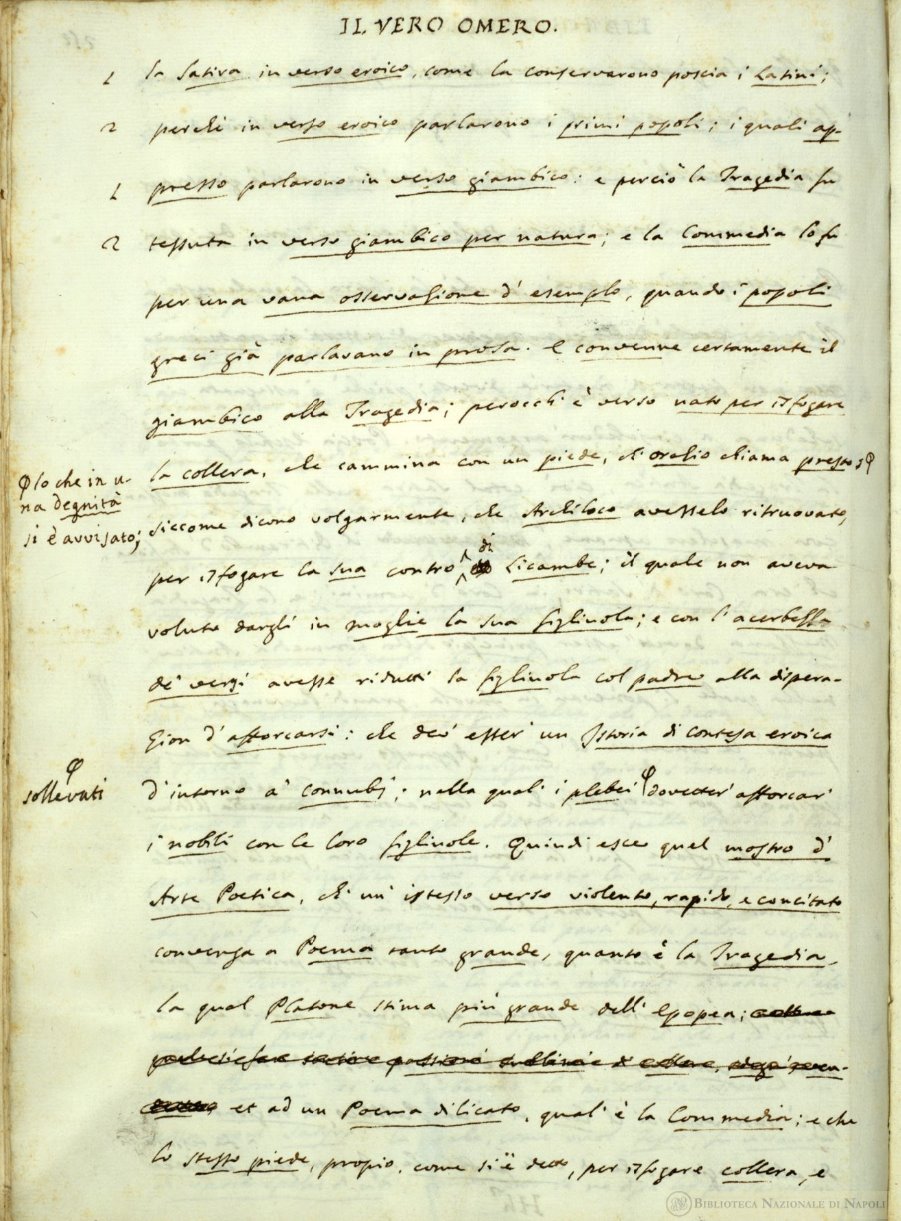 IL VERO OMERO.
la Satira in verso eroico, come la conservarono poscia i Latini;
perchè in verso eroico parlarono i primi popoli; i quali ap-
presso parlarono in verso giambico: e perciò la Tragedia fu
tessuta in verso giambico per natura; e la Commedia lo fu
per una vana osservazione d' esemplo, quando i popoli
greci già parlavano in prosa. E convenne certamente il
giambico alla Tragedia; perocch' è verso nato per isfogare
la collera, che cammina con un piede, ch' Orazio chiama presto;
lo che in u-
na degnità
si è avvisato;
siccome dicono volgarmente, che Archiloco avesselo ritruovato,
per isfogare la sua contro di Licambe; il quale non aveva
voluto dargli in moglie la sua figliuola; e con l' acerbezza
de' versi avesse ridutti la figliuola col padre alla dispera-
zion d' afforcarsi: che dev' esser' un' Istoria di contesa eroica
d' intorno a' connubj; nella qual' i plebei dovetter' afforcar'
sollevati
i nobili con le loro figliuole. Quindi esce quel mostro d'
Arte Poetica, ch' un' istesso verso violento, rapido, e concitato
convenga a Poema tanto grande, quanto è la Tragedia,
la qual Platone stima più grande dell' Epopea;
et ad un Poema dilicato, qual' è la Commedia; e che
lo stesso piede, propio, come si è detto, per isfogare collera, e
BIBLIOTECA NAZIONALE DI NAPOLI